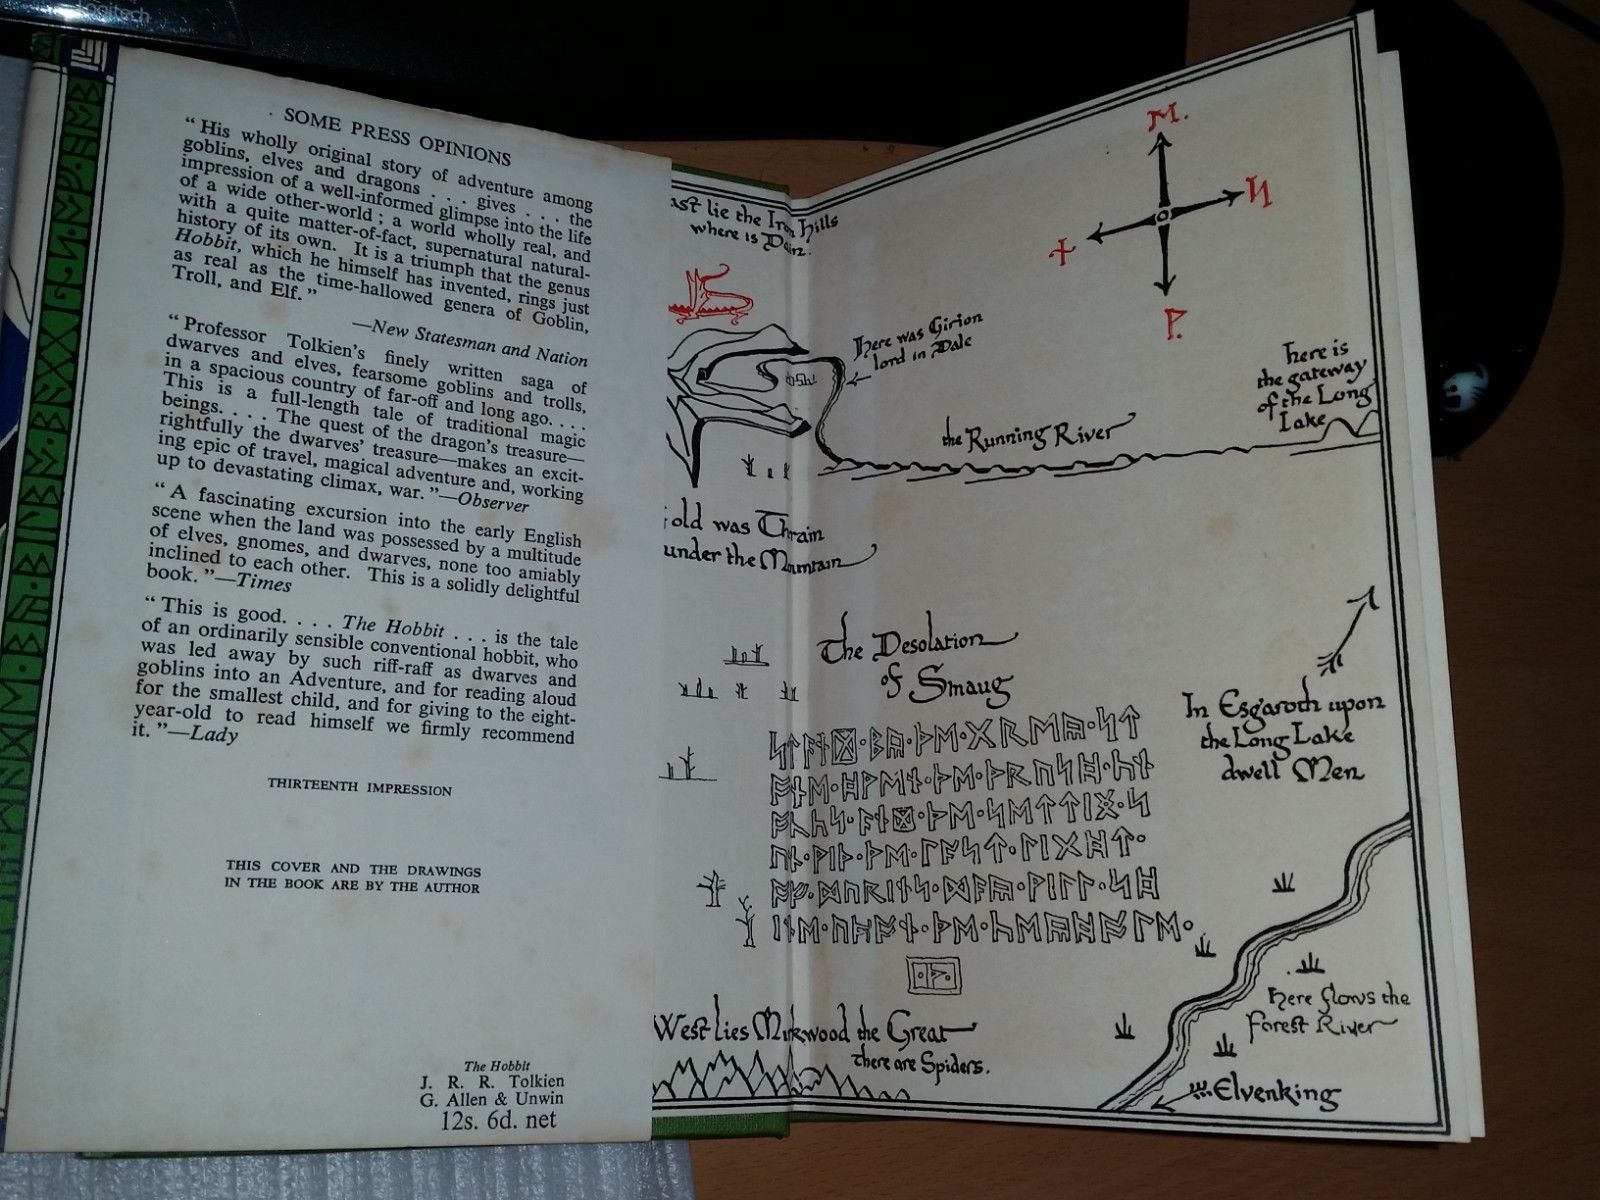 Logitech
SOME PRESS OPINIONS
“His wholly original story of adventure among
goblins, elves and dragons . . . gives . . . the
impression of a well-informed glimpse into the life
of a wide other-world ; a world wholly real, and
with a quite matter-of-fact, supernatural natural-
history of its own. It is a triumph that the genus
Hobbit, which he himself has invented, rings just
as real as the time-hallowed genera of Goblin,
Troll, and Elf.”
—New Statesman and Nation
“Professor Tolkien's finely written saga of
dwarves and elves, fearsome goblins and trolls,
in a spacious country of far-off and long ago. . . .
This is a full-length tale of traditional magic
beings. . . . The quest of the dragon's treasure—
rightfully the dwarves' treasure—makes an excit-
ing epic of travel, magical adventure and, working
up to devastating climax, war.”—Observer
“A fascinating excursion into the early English
scene when the land was possessed by a multitude
of elves, gnomes, and dwarves, none too amiably
inclined to each other. This is a solidly delightful
book.”—Times
“This is good. . . . The Hobbit . . . is the tale
of an ordinarily sensible conventional hobbit, who
was led away by such riff-raff as dwarves and
goblins into an Adventure, and for reading aloud
for the smallest child, and for giving to the eight-
year-old to read himself we firmly recommend
it.”—Lady
THIRTEENTH IMPRESSION
THIS COVER AND THE DRAWINGS
IN THE BOOK ARE BY THE AUTHOR
The Hobbit
J. R. R. Tolkien
G. Allen & Unwin
12s. 6d. net
ast lie the Iron Hills
where is Dain.
ᛖ.
ᛋ
ᚾ
ᚹ.
Here was Girion
lord in Dale
the Running River
Here is
the gateway
of the Long
Lake
old was Thrain
under the Mountain
The Desolation
of Smaug
ᛋᛏᚪᚾᛞ᛫ᛒᚣ᛫ᚦᛖ᛫ᚷᚱᛖᚣ᛫ᛋᛏ
ᚩᚾᛖ᛫ᚻᚹᛖᚾ᛫ᚦᛖ᛫ᚦᚱᚢᛋᚻ᛫ᚳᚾ
ᚩᚳᚳᛋ᛫ᚪᚾᛞ᛫ᚦᛖ᛫ᛋᛖᛏᛏᛁᛝ᛫ᛋ
ᚢᚾ᛫ᚹᛁᚦ᛫ᚦᛖ᛫ᛚᚪᛋᛏ᛫ᛚᛁᚷᚻᛏ᛫
ᚩᚠ᛫ᛞᚢᚱᛁᚾᛋ᛫ᛞᚪᚣ᛫ᚹᛁᛚᛚ᛫ᛋᚻ
ᛁᚾᛖ᛫ᚢᛈᚩᚾ᛫ᚦᛖ᛫ᚳᛖᚣᚻᚩᛚᛖ᛫
᛫ᚦ᛫
In Esgaroth upon
the Long Lake
dwell Men
West lies Mirkwood the Great
there are Spiders.
Here flows the
Forest River
Elvenking